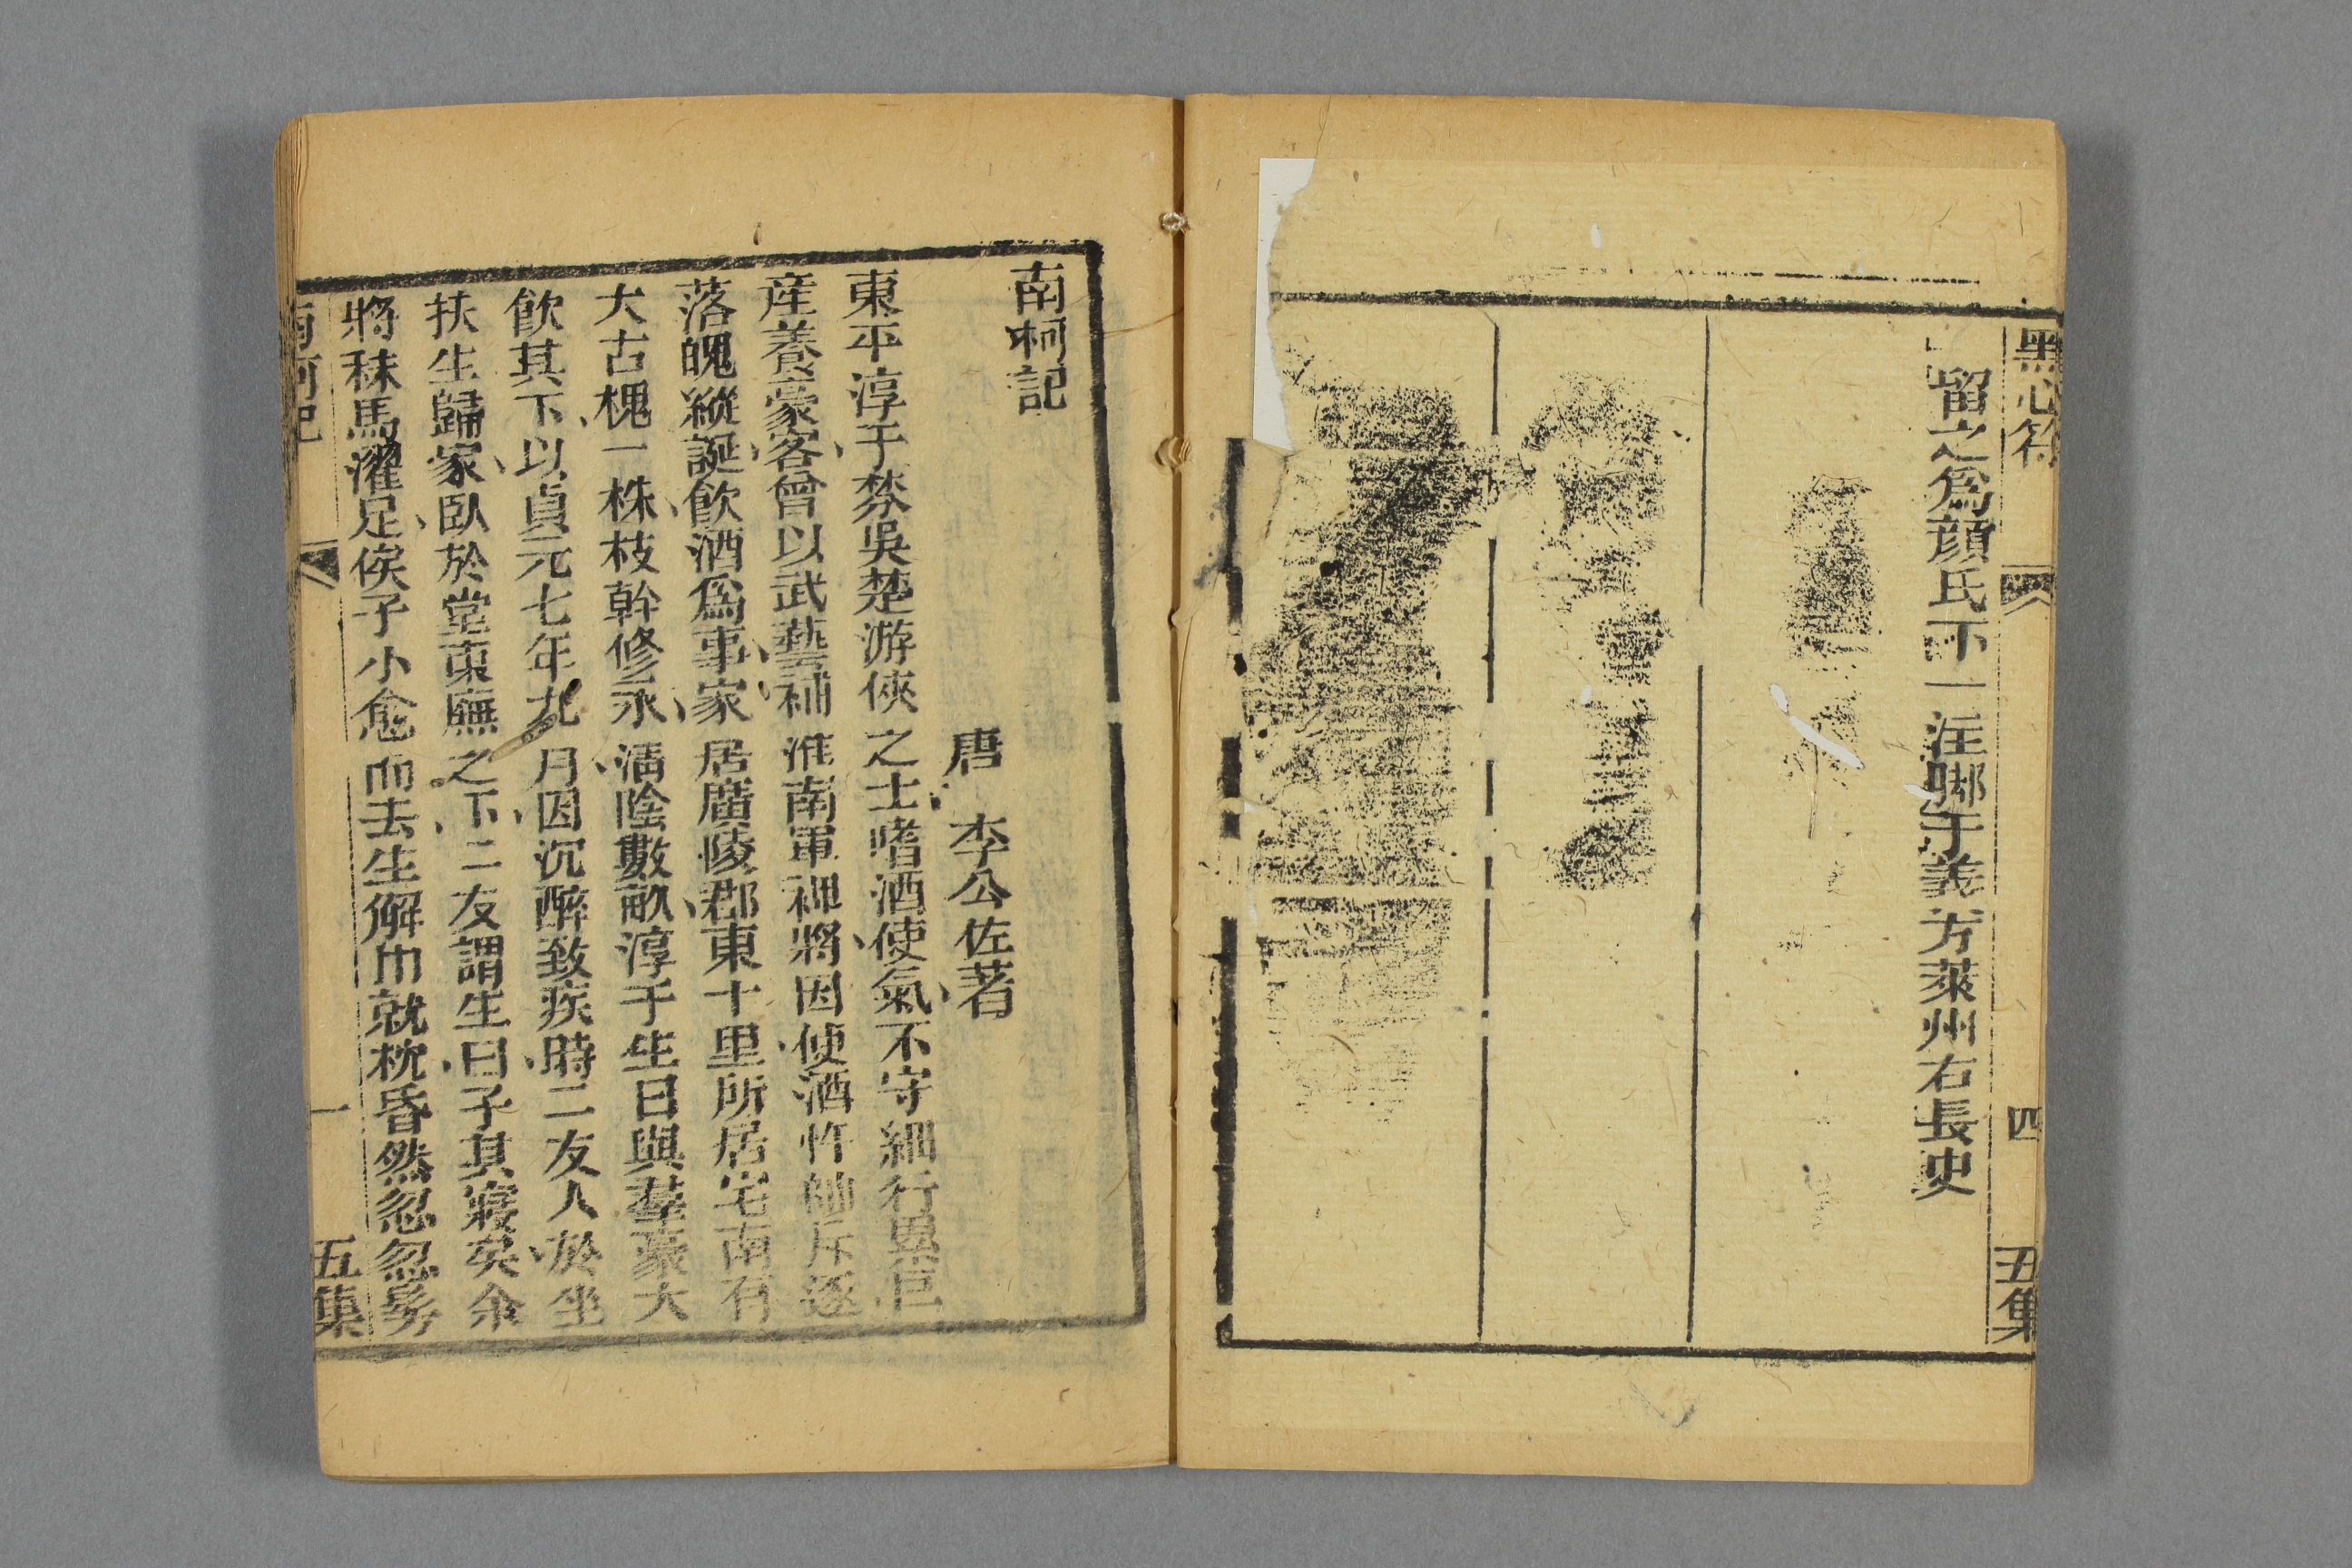 黑心符
四
五集
留之爲顏氏下一注腳于義方萊州右長史
南柯記
唐 李公佐著
東平淳于棼吳楚游俠之士嗜酒使氣不守細行累巨
産養豪客曾以武藝補淮南軍裨將因使酒忤帥斥逐
落魄縱誕飲酒爲事家居廣陵郡東十里所居宅南有
大古槐一株枝幹修永淸陰數畝淳于生日與羣豪大
飲其下以貞元七年九月因沉醉致疾時二友人於坐
扶生歸家臥於堂東廡之下二友謂生曰子其寢矣余
將秣馬濯足俟子小愈而去生解巾就枕昏然忽忽髣
南柯記
一
五集